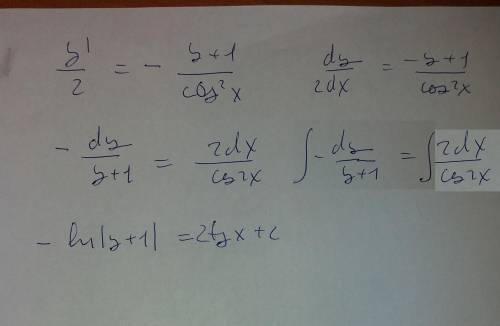 y'/2 = - y+1/cos²x    dy/2dx = -y+1/cos²x
- dy/y+1 = 2dx/cos²x    ∫- dy/y+1 = ∫2dx/cos²x
- ln|y+1| = 2tgx+c